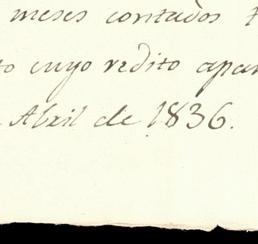 meses contados
to cuyo redito apar
Abril de 1836.